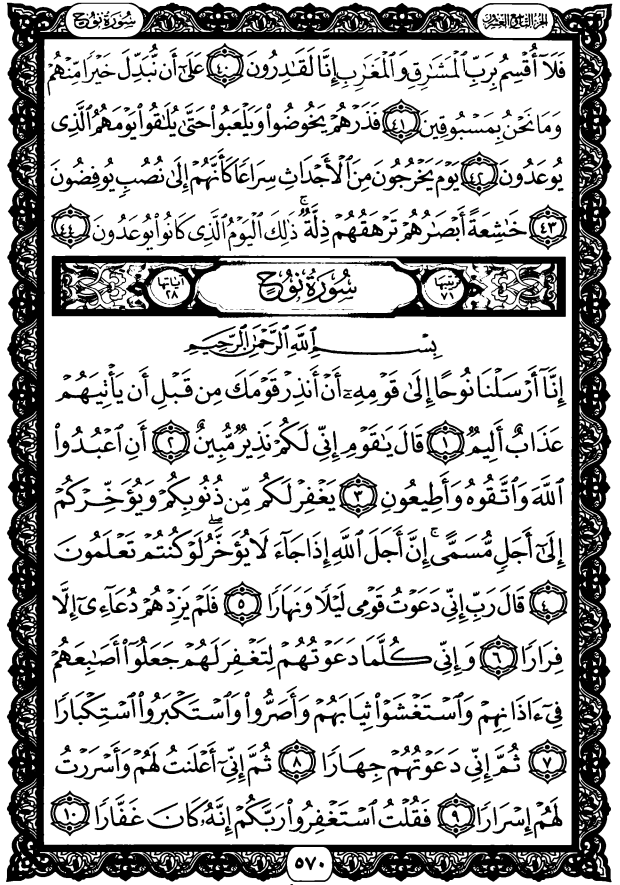 الجزء التاسع والعشرون
سُورَةُ نُوحٍ
فَلَآ أُقْسِمُ بِرَبِّ ٱلْمَشَٰرِقِ وَٱلْمَغَٰرِبِ إِنَّا لَقَٰدِرُونَ ٤٠ عَلَىٰٓ أَن نُّبَدِّلَ خَيْرًا مِّنْهُمْ
وَمَا نَحْنُ بِمَسْبُوقِينَ ٤١ فَذَرْهُمْ يَخُوضُوا۟ وَيَلْعَبُوا۟ حَتَّىٰ يُلَٰقُوا۟ يَوْمَهُمُ ٱلَّذِى
يُوعَدُونَ ٤٢ يَوْمَ يَخْرُجُونَ مِنَ ٱلْأَجْدَاثِ سِرَاعًا كَأَنَّهُمْ إِلَىٰ نُصُبٍ يُوفِضُونَ
٤٣ خَٰشِعَةً أَبْصَٰرُهُمْ تَرْهَقُهُمْ ذِلَّةٌ ۚ ذَٰلِكَ ٱلْيَوْمُ ٱلَّذِى كَانُوا۟ يُوعَدُونَ ٤٤
ترتيبها ٧١ سُورَةُ نُوحٍ آياتها ٢٨
بِسْمِ ٱللَّهِ ٱلرَّحْمَٰنِ ٱلرَّحِيمِ
إِنَّآ أَرْسَلْنَا نُوحًا إِلَىٰ قَوْمِهِۦٓ أَنْ أَنذِرْ قَوْمَكَ مِن قَبْلِ أَن يَأْتِيَهُمْ
عَذَابٌ أَلِيمٌ ١ قَالَ يَٰقَوْمِ إِنِّى لَكُمْ نَذِيرٌ مُّبِينٌ ٢ أَنِ ٱعْبُدُوا۟
ٱللَّهَ وَٱتَّقُوهُ وَأَطِيعُونِ ٣ يَغْفِرْ لَكُم مِّن ذُنُوبِكُمْ وَيُؤَخِّرْكُمْ
إِلَىٰٓ أَجَلٍ مُّسَمًّى ۚ إِنَّ أَجَلَ ٱللَّهِ إِذَا جَآءَ لَا يُؤَخَّرُ ۖ لَوْ كُنتُمْ تَعْلَمُونَ
٤ قَالَ رَبِّ إِنِّى دَعَوْتُ قَوْمِى لَيْلًا وَنَهَارًا ٥ فَلَمْ يَزِدْهُمْ دُعَآءِىٓ إِلَّا
فِرَارًا ٦ وَإِنِّى كُلَّمَا دَعَوْتُهُمْ لِتَغْفِرَ لَهُمْ جَعَلُوٓا۟ أَصَٰبِعَهُمْ
فِىٓ ءَاذَانِهِمْ وَٱسْتَغْشَوْا۟ ثِيَابَهُمْ وَأَصَرُّوا۟ وَٱسْتَكْبَرُوا۟ ٱسْتِكْبَارًا
٧ ثُمَّ إِنِّى دَعَوْتُهُمْ جِهَارًا ٨ ثُمَّ إِنِّىٓ أَعْلَنتُ لَهُمْ وَأَسْرَرْتُ
لَهُمْ إِسْرَارًا ٩ فَقُلْتُ ٱسْتَغْفِرُوا۟ رَبَّكُمْ إِنَّهُۥ كَانَ غَفَّارًا ١٠
٥٧٠